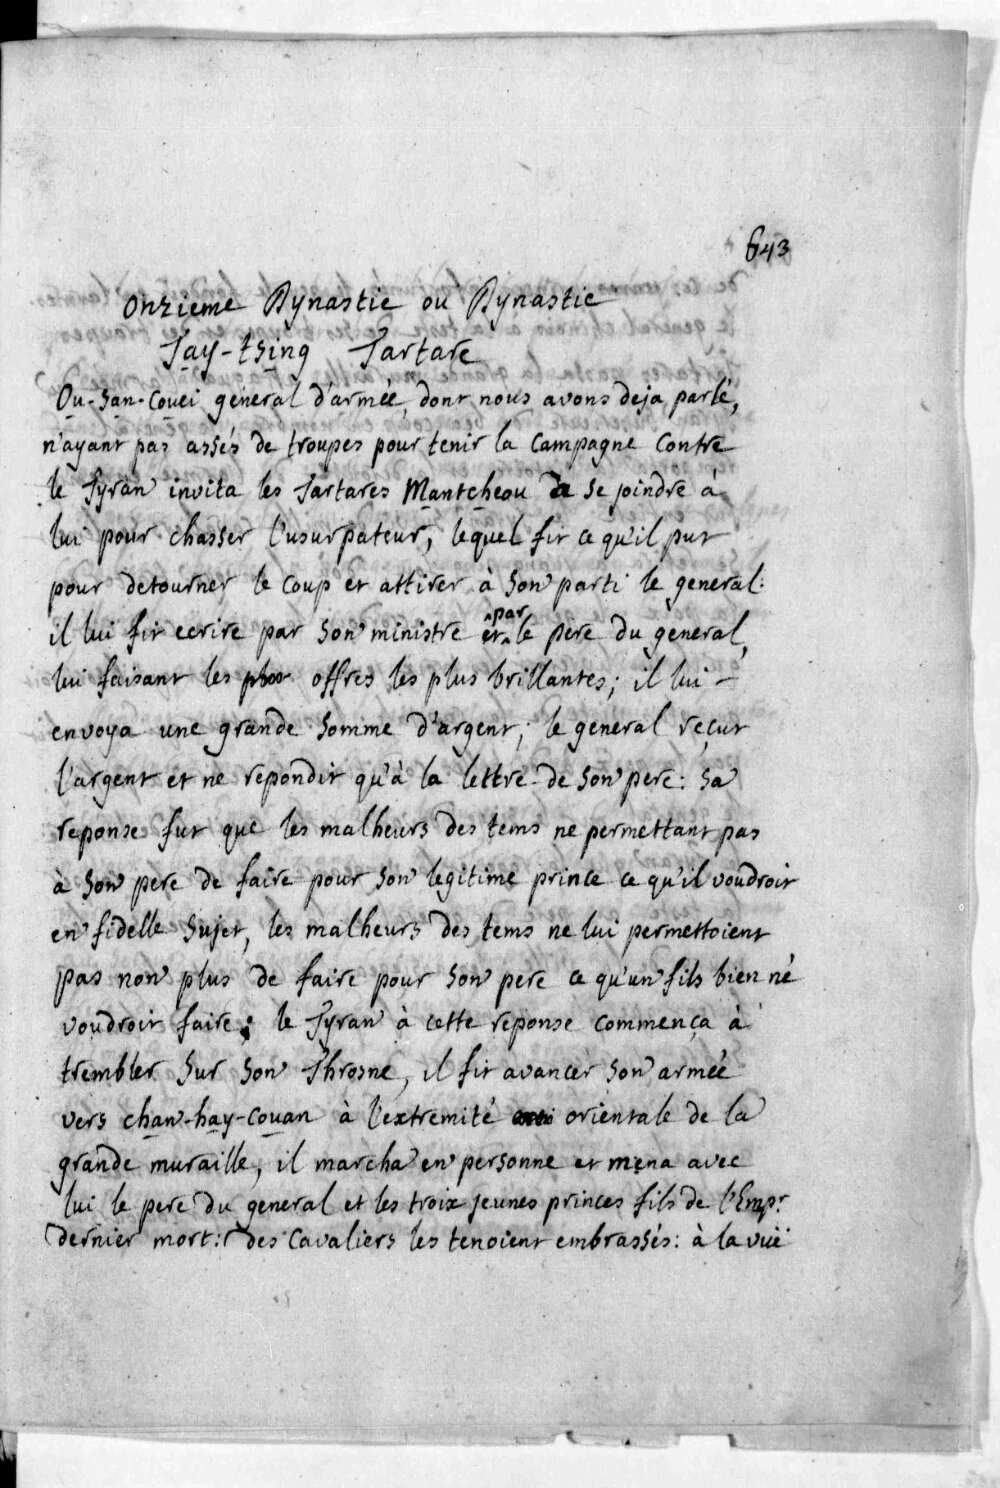 643
Onzieme Dynastie ou Dynastie
Tay-tsing Tartare
Ou-San-Couei général d'armée, dont nous avons deja parlé,
n'ayant pas assés de troupes pour tenir la Campagne Contre
le Tyran invita les Tartares Mantcheou a se joindre à
lui pour chasser l'usurpateur, lequel fit ce qu'il put
pour detourner le Coup et attirer à Son parti le general:
il lui fit ecrire par Son ministre et par le père du general,
lui faisant les offres les plus brillantes; il lui
envoya une grande Somme d'argent; le general reçut
l'argent et ne repondit qu'à la lettre de Son pere: Sa
reponse fut que les malheurs des tems ne permettant pas
à Son pere de faire pour Son legitime prince ce qu'il voudroit
en fidelle Sujet, les malheurs des tems ne lui permettoient
pas non plus de faire pour Son pere ce qu'un fils bien né
voudroit faire: le Tyran à cette reponse commença à
trembler Sur Son Throsne, il fit avancer Son armée
vers chan-hay-couan à l'extremité orientale de la
grande muraille, il marcha en personne et mena avec
lui le pere du general et les troix jeunes princes fils de l'Empr
dernier mort: des Cavaliers les tenoient embrassés: à la vuë